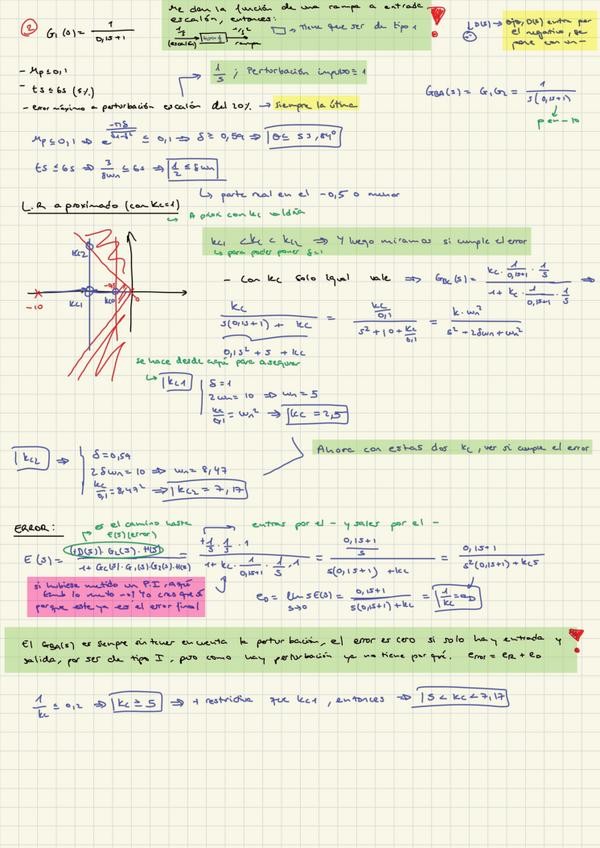 Me dan la función de una rampa a entrada
escalón, entonces:
② G₁(s) = 1/(0,1s+1)
1/s (escalón) → → 1/s² rampa
→ Tiene que ser de tipo 1
D(s) → Ojo, D(s) entra por
el negativo, se
pone con un -
- Mp ≤ 0,1
- ts ≤ 6s (5%)
- error máximo a perturbación escalón del 20% → siempre la última
1/s ; Perturbación impulso = 1
G_BA(s) = G₁G₂ = 1/(s(0,1s+1))
p en -10
Mp ≤ 0,1 → e^(-πδ/√(1-δ²)) ≤ 0,1 → δ ≥ 0,59 → θ ≤ 53,84°
ts ≤ 6s → 3/(δwn) ≤ 6s → 1/2 ≤ δwn
↳ parte real en el -0,5 o menor
L.R aproximado (con kc=1)
↳ A prox con kc valdría
kc1 < kc < kc2 ⇒ Y luego miramos si cumple el error
↳ para poder poner δ=1
kc2
kc1
kc0
-0,5
-10
- Con kc solo igual vale ⇒ G_BC(s) = (kc · 1/(0,1s+1) · 1/s)/(1 + kc · 1/(0,1s+1) · 1/s) ⇒
kc/(s(0,1s+1) + kc) = (kc/0,1)/(s² + 10 + kc/0,1) = k·wn²/(s² + 2δwn + wn²)
0,1s² + s + kc
se hace desde aquí para asegurar
↳ kc1
δ = 1
2wn = 10 ⇒ wn = 5
kc/0,1 = wn² ⇒ kc = 2,5
kc2 ⇒
δ = 0,59
2δwn = 10 ⇒ wn = 8,47
kc/0,1 = 8,47² ⇒ kc2 = 7,17
Ahora con estas dos kc, ver si cumple el error
ERROR:
es el camino hasta
E(s) (error)
entras por el - y sales por el -
E(s) = (+D(s)·G₂(s)·H(s))/(1+Gc(s)·G₁(s)·G₂(s)·H(s)) = (+1/s · 1/s · 1)/(1 + kc · 1/(0,1s+1) · 1/s · 1) = ((0,1s+1)/s)/(s(0,1s+1) + kc) = (0,1s+1)/(s²(0,1s+1) + kc)
si hubiese metido un P.I, aquí
no lo meto no? Yo creo que sí
porque este ya es el error final
e_D = lim s→0 sE(s) = (0,1s+1)/(s(0,1s+1) + kc) = 1/kc = e_D
El G_BA(s) es siempre sin tener en cuenta la perturbación, el error es cero si solo hay entrada y
salida, por ser de tipo I, pero como hay perturbación ya no tiene por qué. error = e_R + e_D
1/kc ≤ 0,2 ⇒ kc ≥ 5 ⇒ + restrictiva que kc1, entonces ⇒ 5 < kc < 7,17